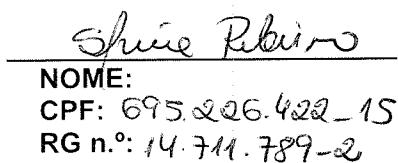 Ribeiro
NOME:
CPF: 695.226.422-15
RG n.º: 14.711.789-2